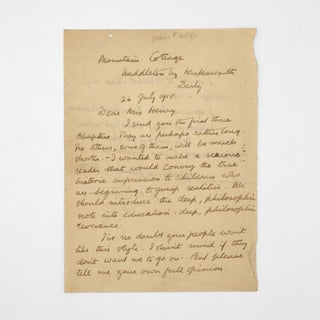 Mountain Cottage
Middleton by Wirksworth
Derby
26 July 1918.
Dear Mrs Henry,
I send you the first three
chapters. They are perhaps rather long -
the others, some of them, will be much
shorter. - I wanted to make a
reader that would convey the true
historic impression to children who
are beginning to grasp realities. We
should introduce the deep, philosophic
note into education: deep, philosophic
reverence.
I've no doubt your people won't
like this style. I shan't mind if they
don't want me to go on. But please
tell me your own full opinion.